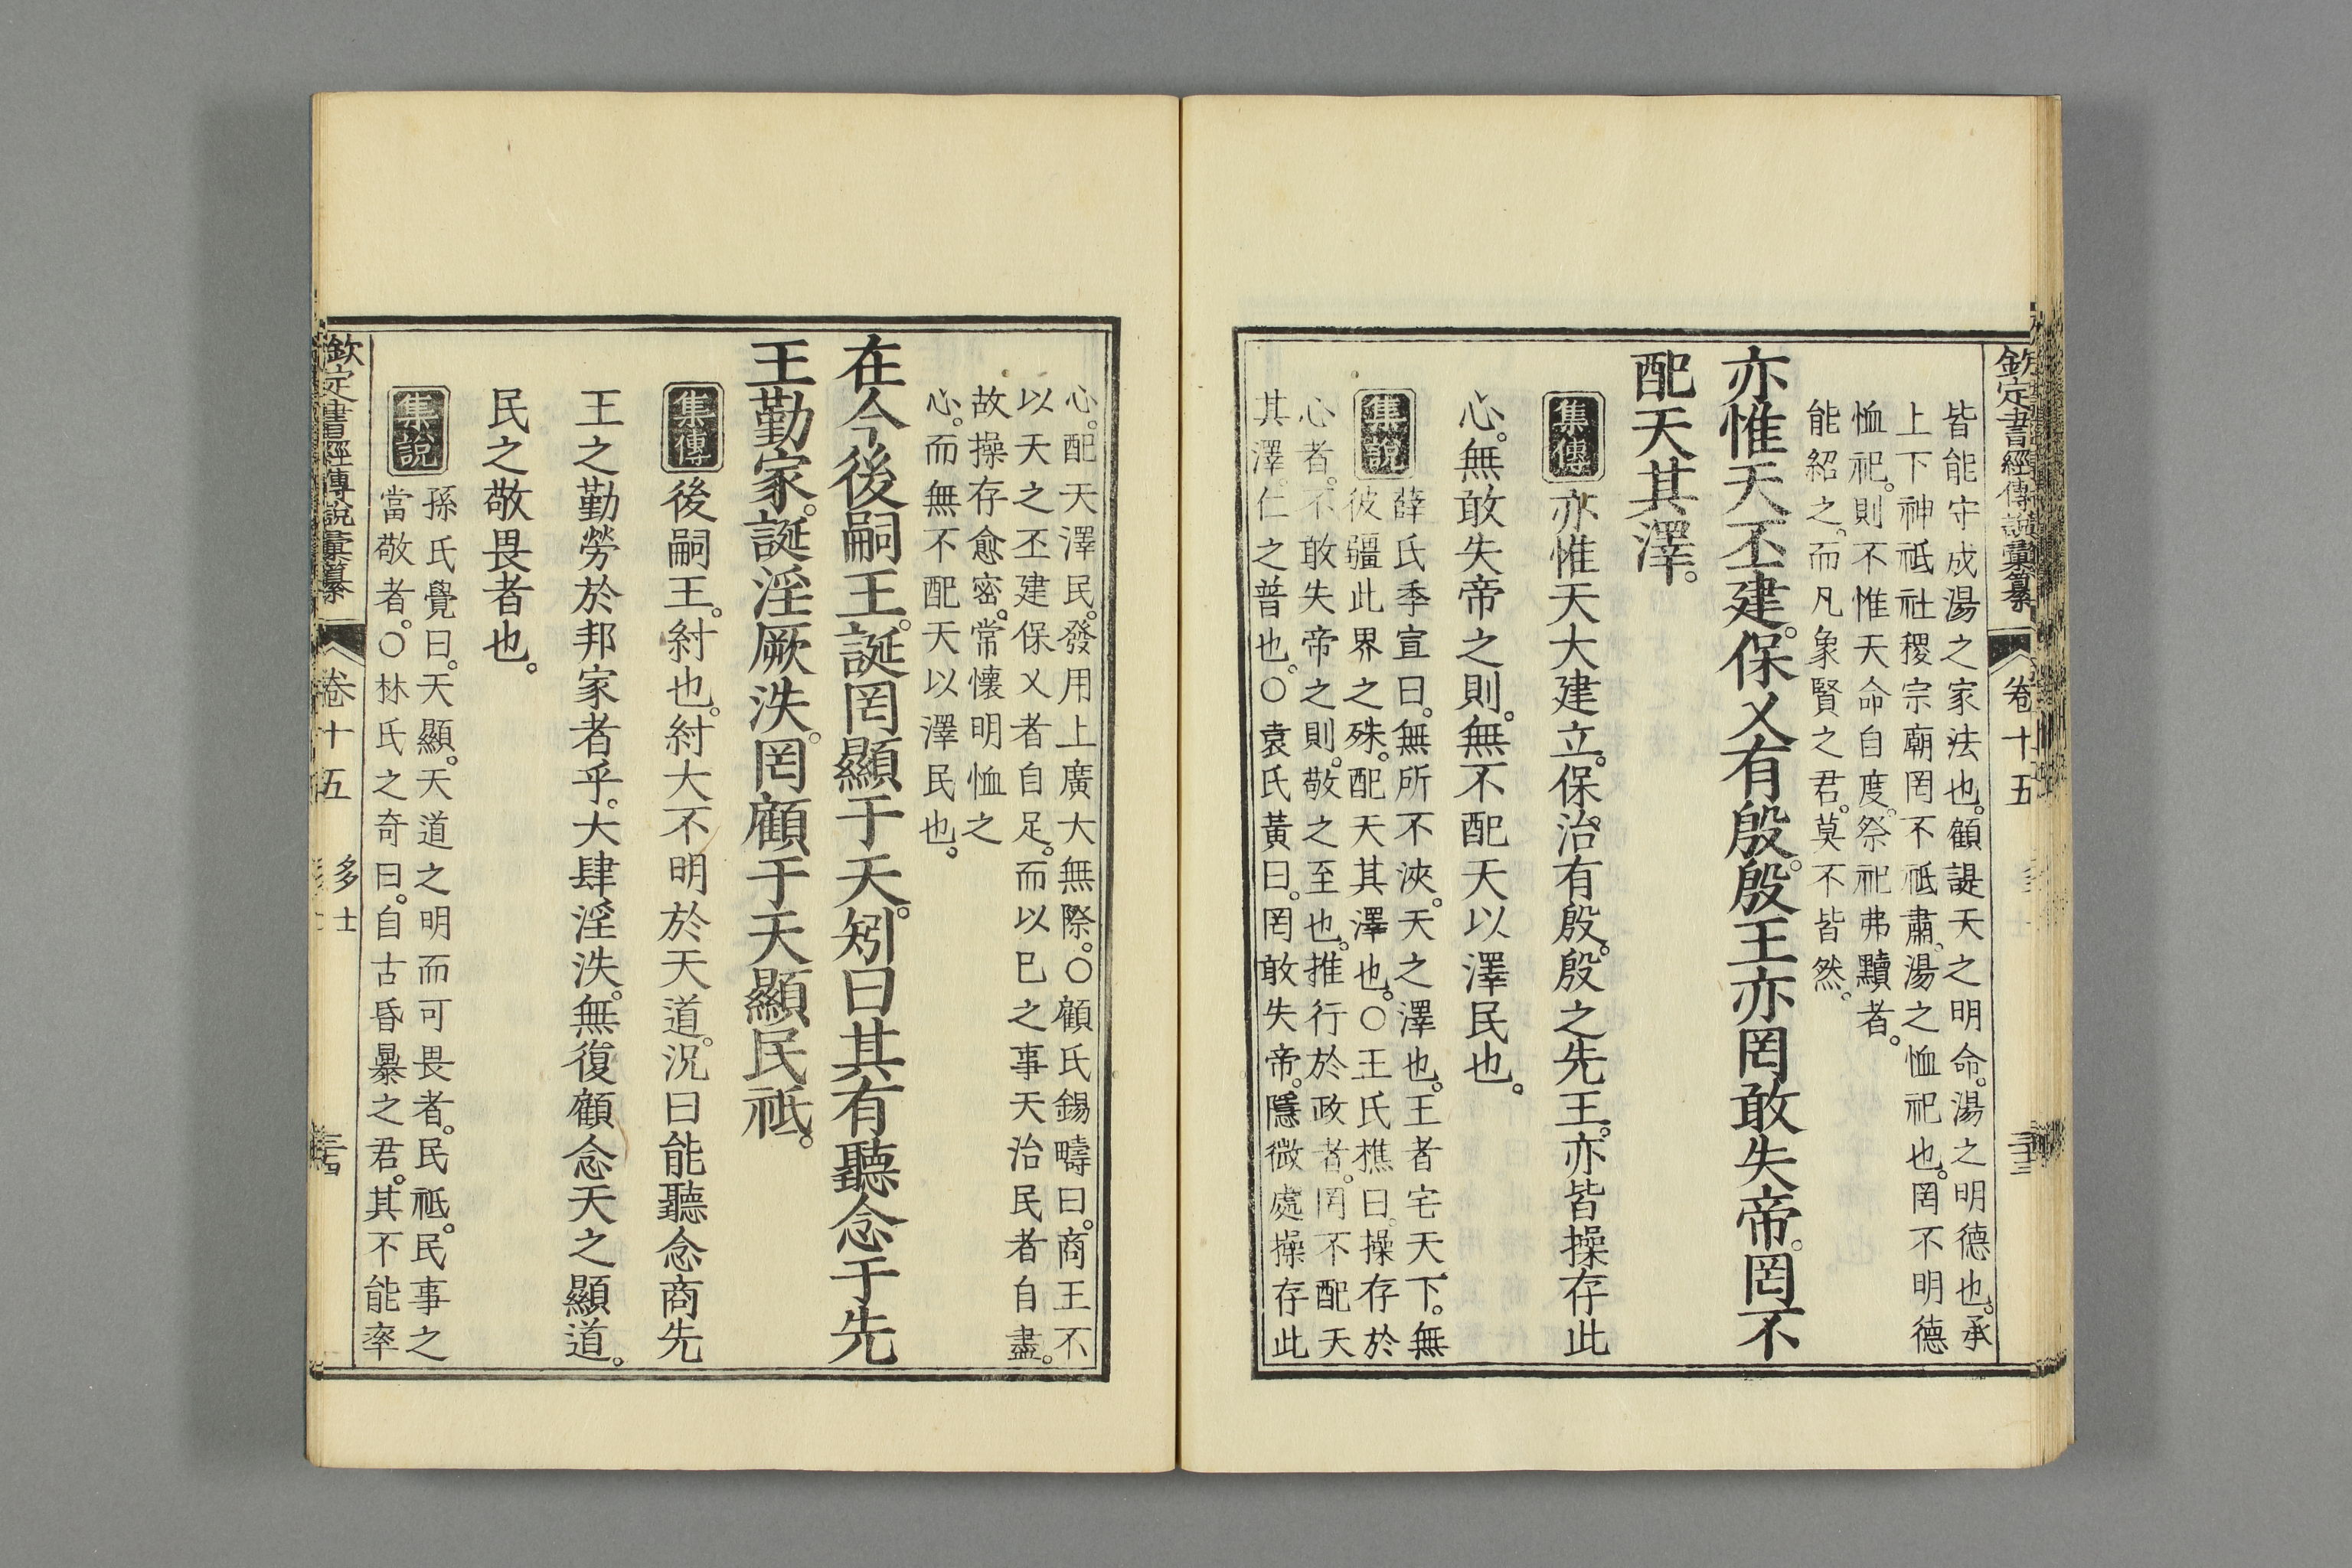 欽定書經傳說彙纂 卷十五
皆能守成湯之家法也。顧諟天之明命。湯之明德也。承
上下神祇社稷宗廟罔不祗肅。湯之恤祀也。罔不明德
恤祀。則不惟天命自度。祭祀弗黷者。
能紹之。而凡象賢之君。莫不皆然。
亦惟天丕建。保乂有殷。殷王亦罔敢失帝。罔不
配天其澤。
集傳 亦惟天大建立。保治有殷。殷之先王。亦皆操存此
心。無敢失帝之則。無不配天以澤民也。
集說 薛氏季宣曰。無所不浹。天之澤也。王者宅天下。無
彼疆此界之殊。配天其澤也。○王氏樵曰。操存於
心者。不敢失帝之則。敬之至也。推行於政者。罔不配天
其澤。仁之普也。○袁氏黃曰。罔敢失帝。隱微處操存此
心。配天澤民。發用上廣大無際。○顧氏錫疇曰。商王不
以天之丕建保乂者自足。而以已之事天治民者自盡。
故操存愈密。常懷明恤之
心。而無不配天以澤民也。
在今後嗣王。誕罔顯于天。矧曰其有聽念于先
王勤家。誕淫厥泆。罔顧于天顯民祗。
集傳 後嗣王。紂也。紂大不明於天道。況曰能聽念商先
王之勤勞於邦家者乎。大肆淫泆。無復顧念天之顯道。
民之敬畏者也。
集說 孫氏覺曰。天顯。天道之明而可畏者。民祗。民事之
當敬者。○林氏之奇曰。自古昏暴之君。其不能率
欽定書經傳說彙纂 卷十五 多士